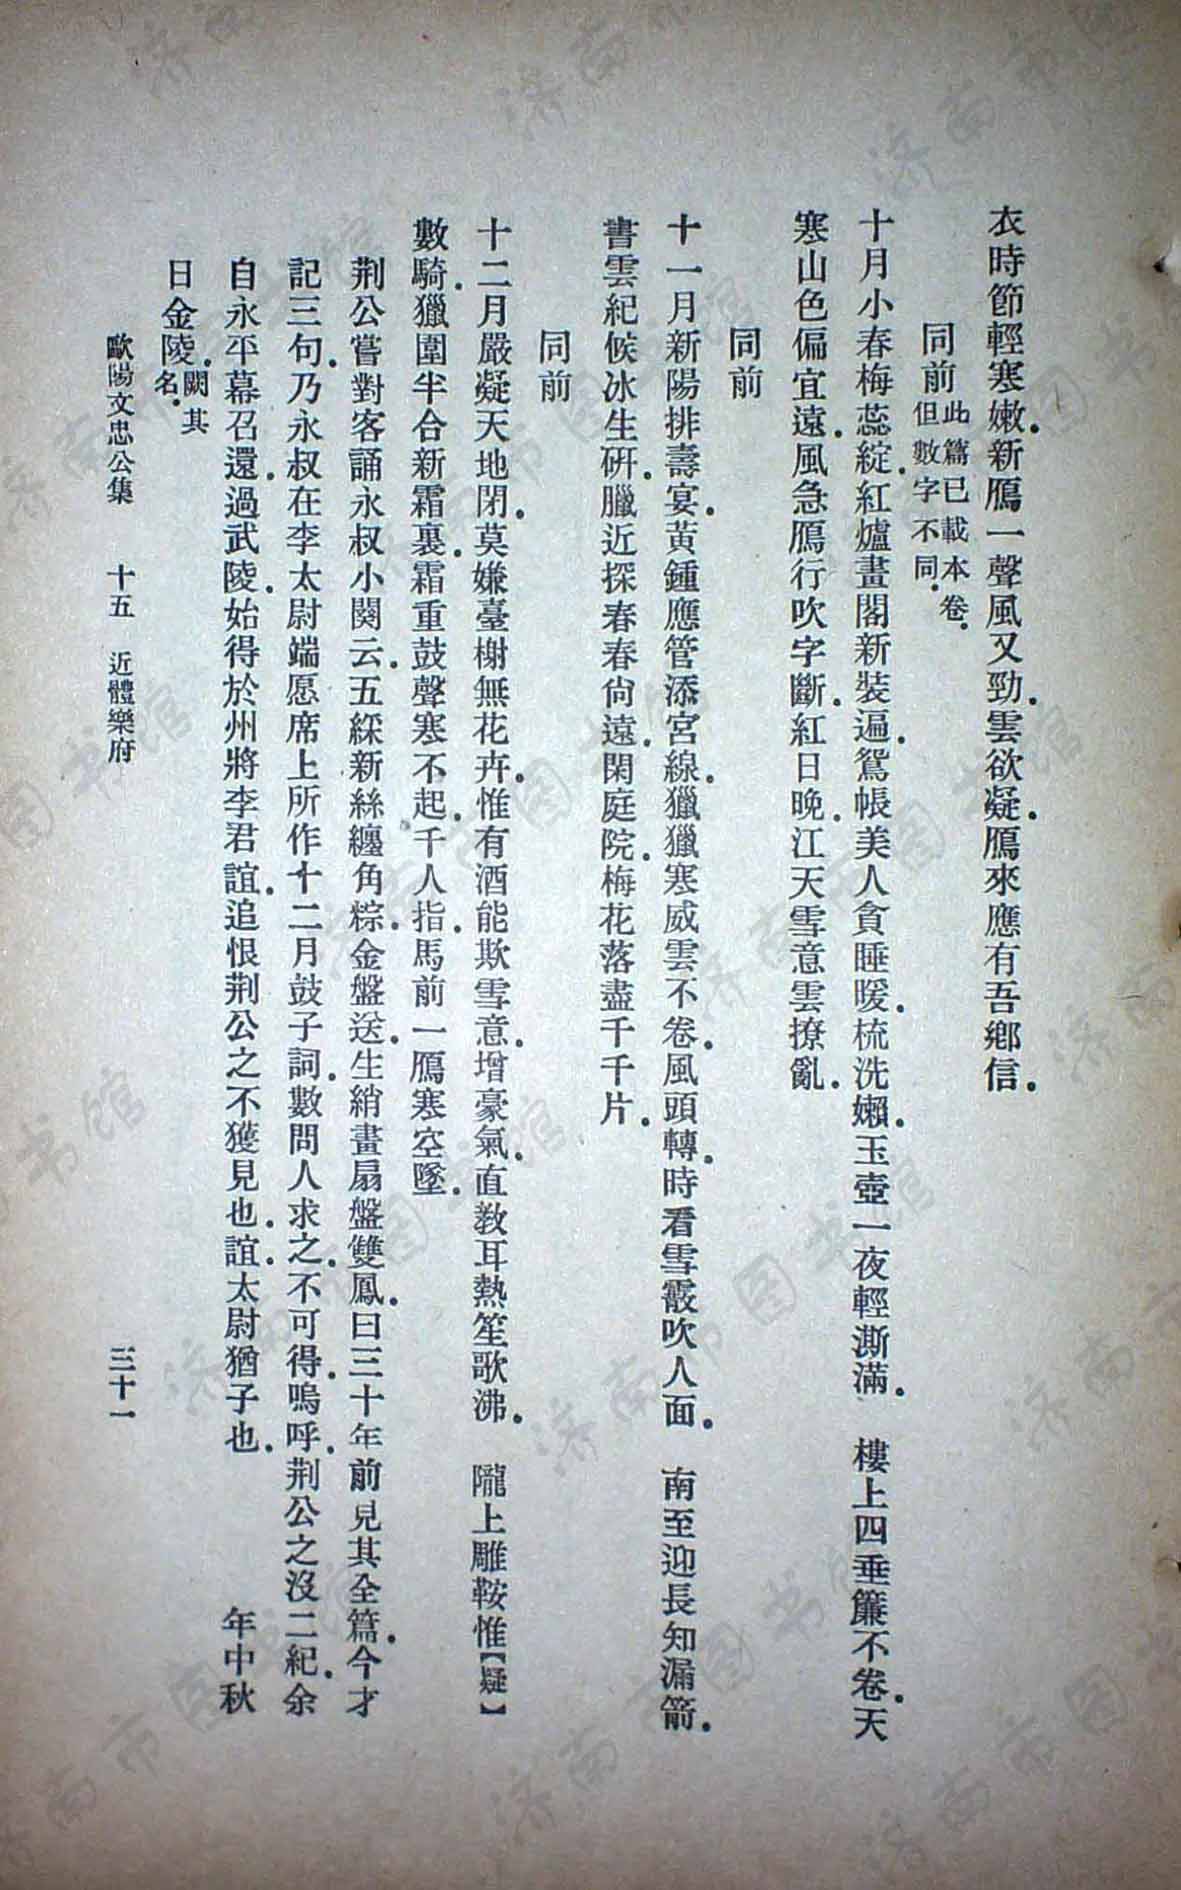 衣時節輕寒嫩.新鴈一聲風又勁.雲欲凝.鴈來應有吾鄉信.
同前此篇已載本卷.
但數字不同.
十月小春梅蕊綻.紅爐畫閣新裝遍.鴛帳美人貪睡暖.梳洗嬾.玉壺一夜輕澌滿.　樓上四垂簾不卷.天
寒山色偏宜遠.風急鴈行吹字斷.紅日晚.江天雪意雲撩亂.
同前
十一月新陽排壽宴.黃鍾應管添宮線.獵獵寒威雲不卷.風頭轉.時看雪霰吹人面.　南至迎長知漏箭.
書雲紀候冰生研.臘近探春春尙遠.閑庭院.梅花落盡千千片.
同前
十二月嚴凝天地閉.莫嫌臺榭無花卉.惟有酒能欺雪意.增豪氣.直敎耳熱笙歌沸.　隴上雕鞍惟【疑】
數騎.獵圍半合新霜裏.霜重鼓聲寒不起.千人指.馬前一鴈寒空墜.
荆公嘗對客誦永叔小闋云.五綵新絲纏角粽.金盤送.生綃畫扇盤雙鳳.曰三十年前見其全篇.今才
記三句.乃永叔在李太尉端愿席上所作十二月鼓子詞.數問人求之.不可得.嗚呼.荆公之沒二紀.余
自永平幕召還.過武陵.始得於州將李君誼.追恨荆公之不獲見也.誼.太尉猶子也.　年中秋
日金陵.闕其
名.
歐陽文忠公集　十五　近體樂府　三十一
济南市图书馆